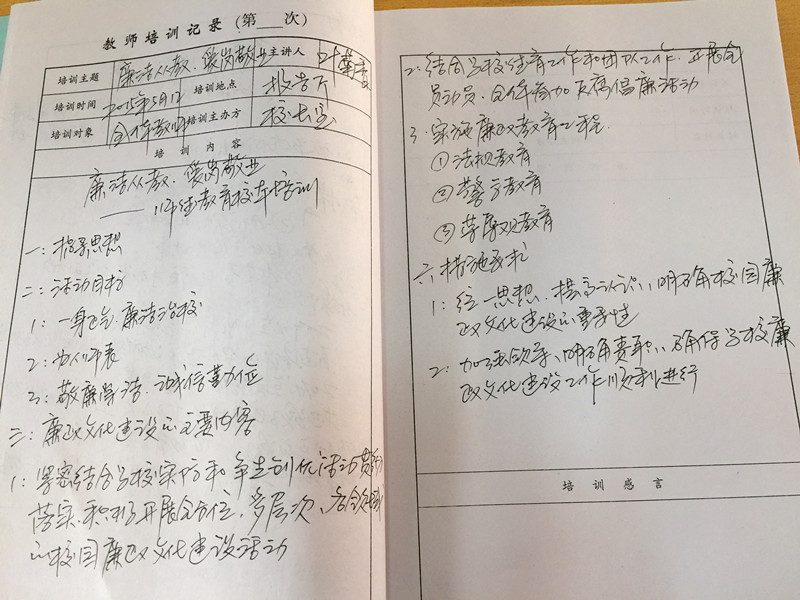 教师培训记录（第　次）
培训主题 廉洁从教、爱岗敬业 主讲人 叶
培训时间 2015年5月12 培训地点 报告厅
培训对象 全体教师 培训主办方 校长室
培训内容
廉洁从教、爱岗敬业
——师德教育校本培训
一：指导思想
二：活动目标
1：一身正气、廉洁治校
2：为人师表
3：敬廉崇洁、诚信勤俭
三：廉政文化建设的主要内容
1：紧密结合学校实际和争先创优活动贯彻
落实、积极开展全方位、多层次、各领域
的校园廉政文化建设活动
2：结合学校德育工作和团队工作、开展全
员动员、全体参加反腐倡廉活动
3：实施廉政教育工程
①法规教育
②警示教育
③荣辱观教育
六：措施要求
1：统一思想、提高认识，明确校园廉
政文化建设的重要性
2：加强领导、明确责职，确保学校廉
政文化建设工作顺利进行
培训感言